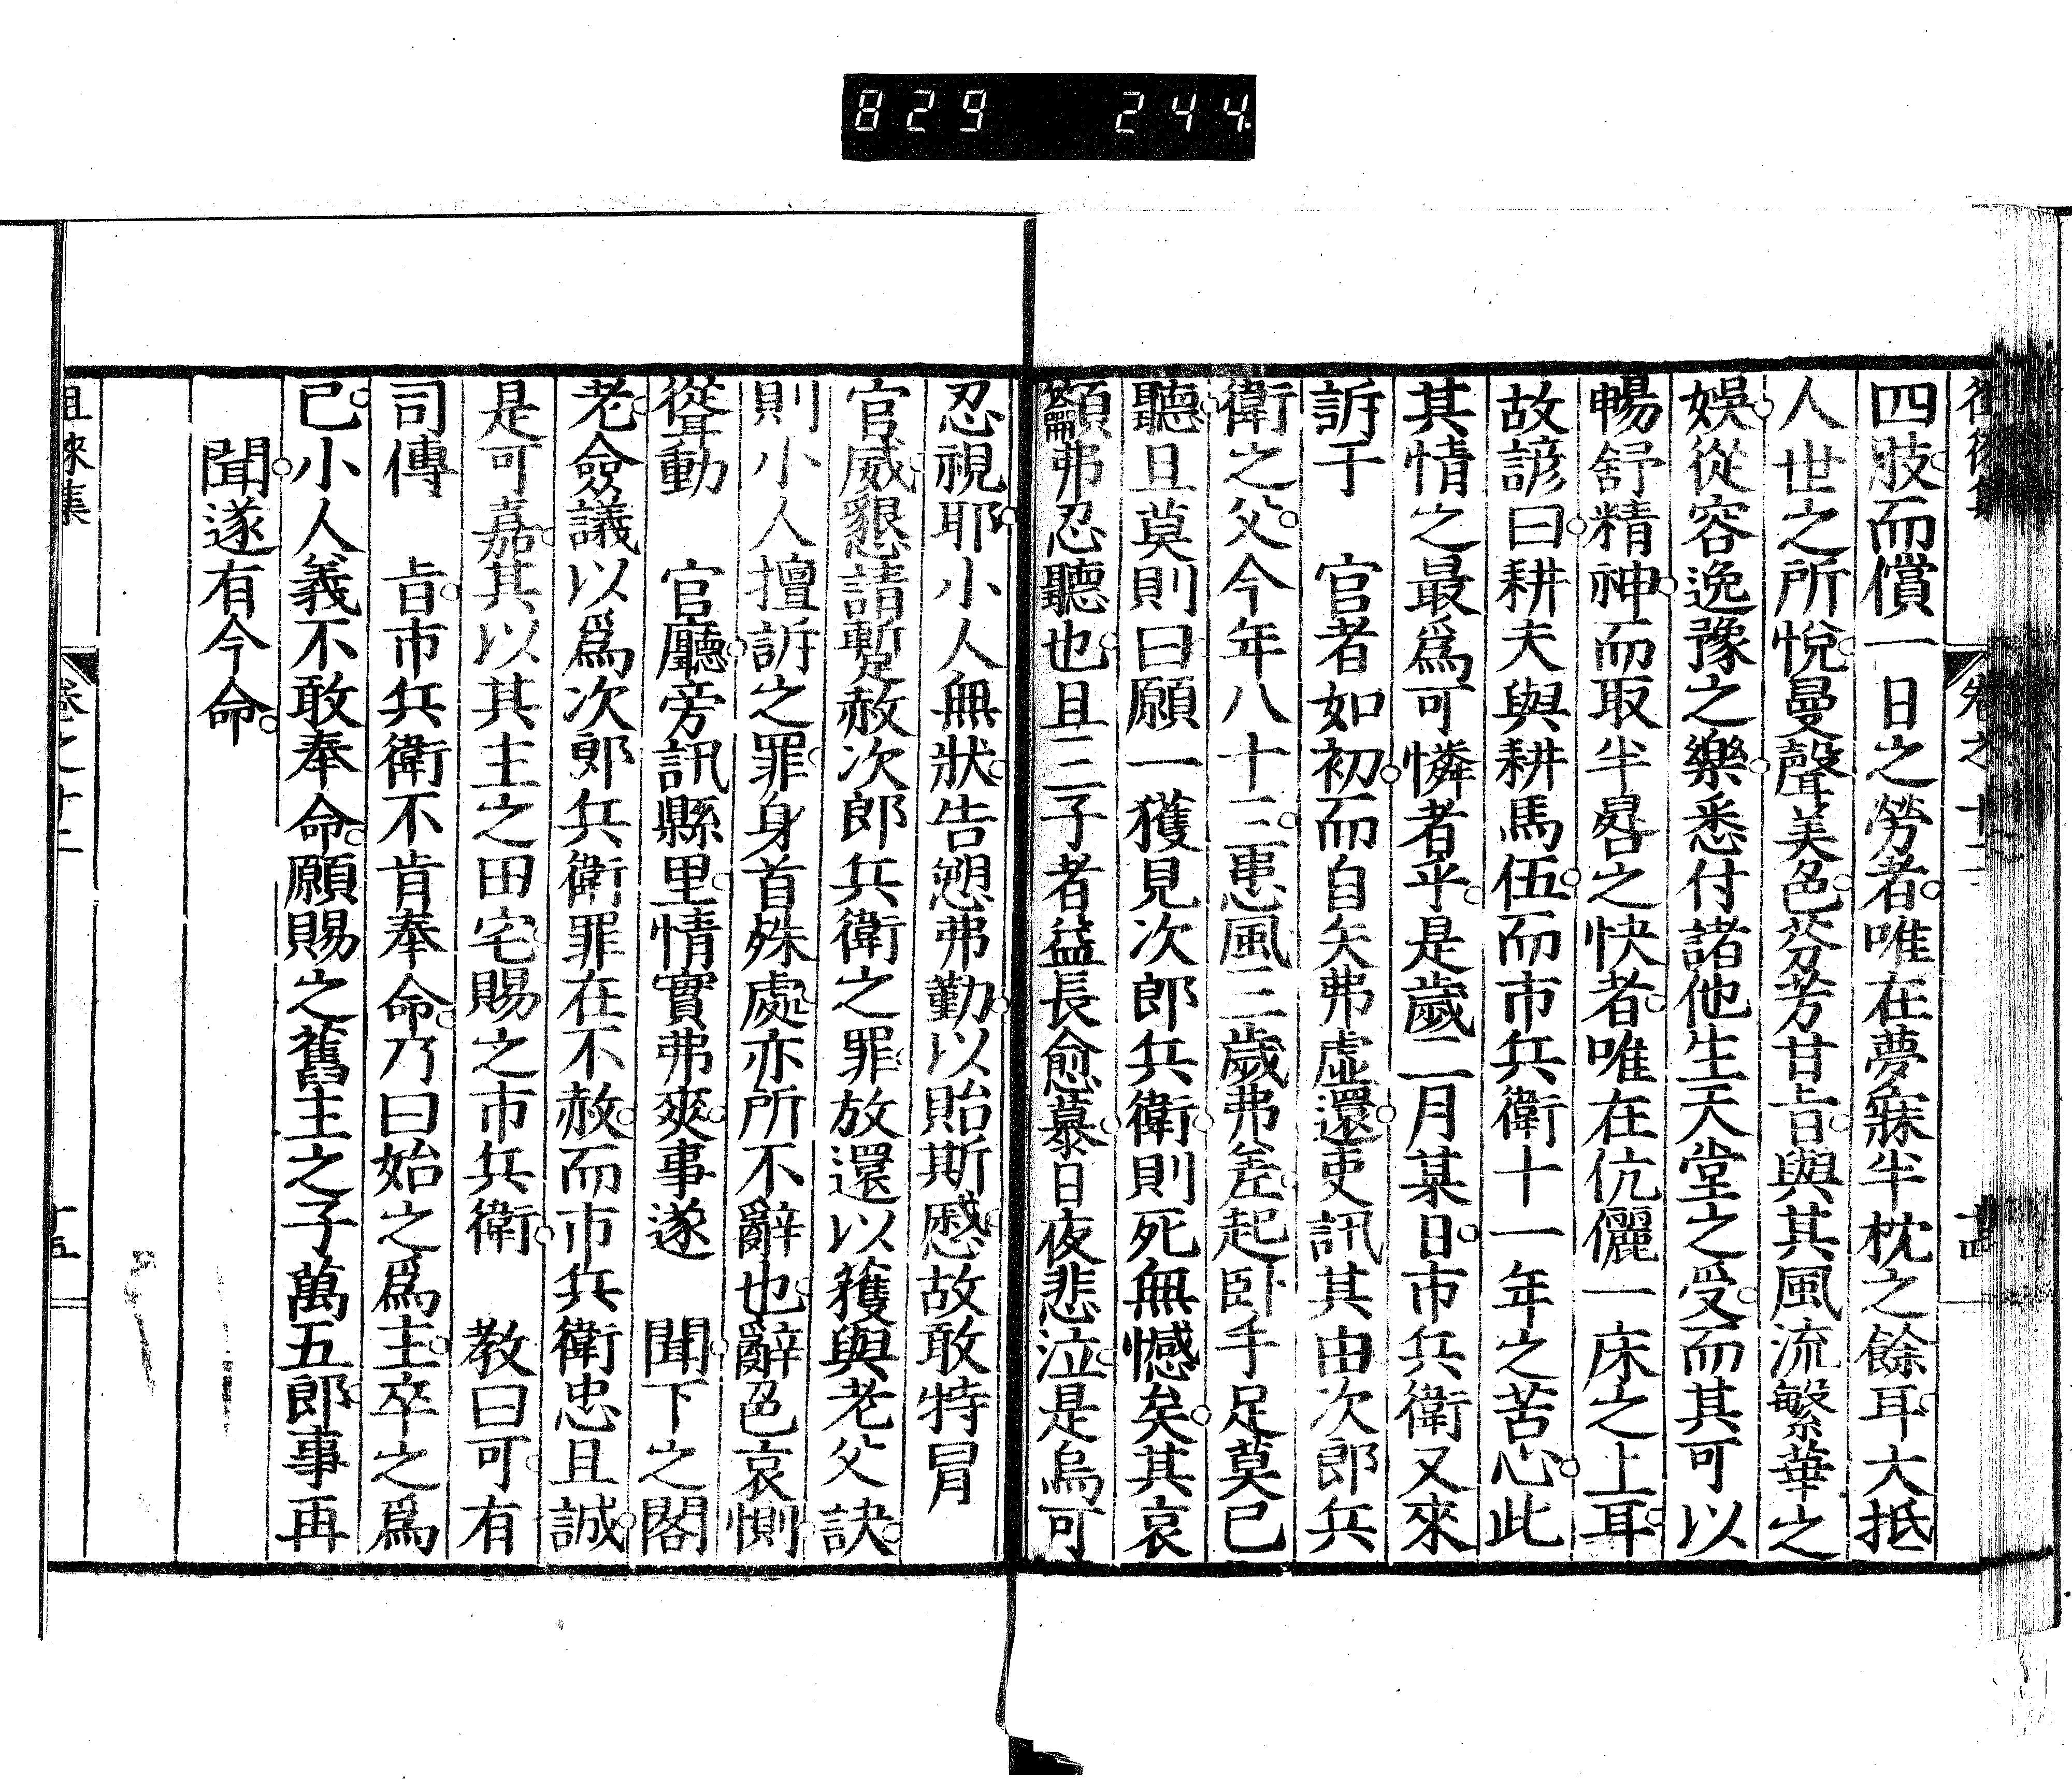 829 244
四肢而償一日之勞者唯在夢寐半枕之餘耳大抵
人世之所悅曼聲美色芬芳甘旨與其風流繁華之
娛從容逸豫之樂悉付諸他生天堂之受而其可以
暢舒精神而取半晷之快者唯在伉儷一床之上耳
故諺曰耕夫與耕馬伍而市兵衛十一年之苦心此
其情之最爲可憐者乎是歲二月某日市兵衛又來
訴于 官者如初而自矢弗虛還吏訊其由次郎兵
衛之父今年八十三患風三歲弗差起臥手足莫已
聽且莫則曰願一獲見次郎兵衛則死無憾矣其哀
籲弗忍聽也且三子者益長愈慕日夜悲泣是烏可
忍視耶小人無狀告愬弗勤以貽斯慼故敢特冒
官威懇請暫赦次郎兵衛之罪放還以獲與老父訣
則小人擅訴之罪身首殊處亦所不辭也辭色哀惻
聳動 官廳旁訊縣里情實弗爽事遂 聞下之閣
老僉議以爲次郎兵衛罪在不赦而市兵衛忠且誠
是可嘉其以其主之田宅賜之市兵衛 教曰可有
司傳 旨市兵衛不肯奉命乃曰始之爲主卒之爲
己小人義不敢奉命願賜之舊主之子萬五郎事再
聞遂有今命
徂徠集 卷之十二 十五